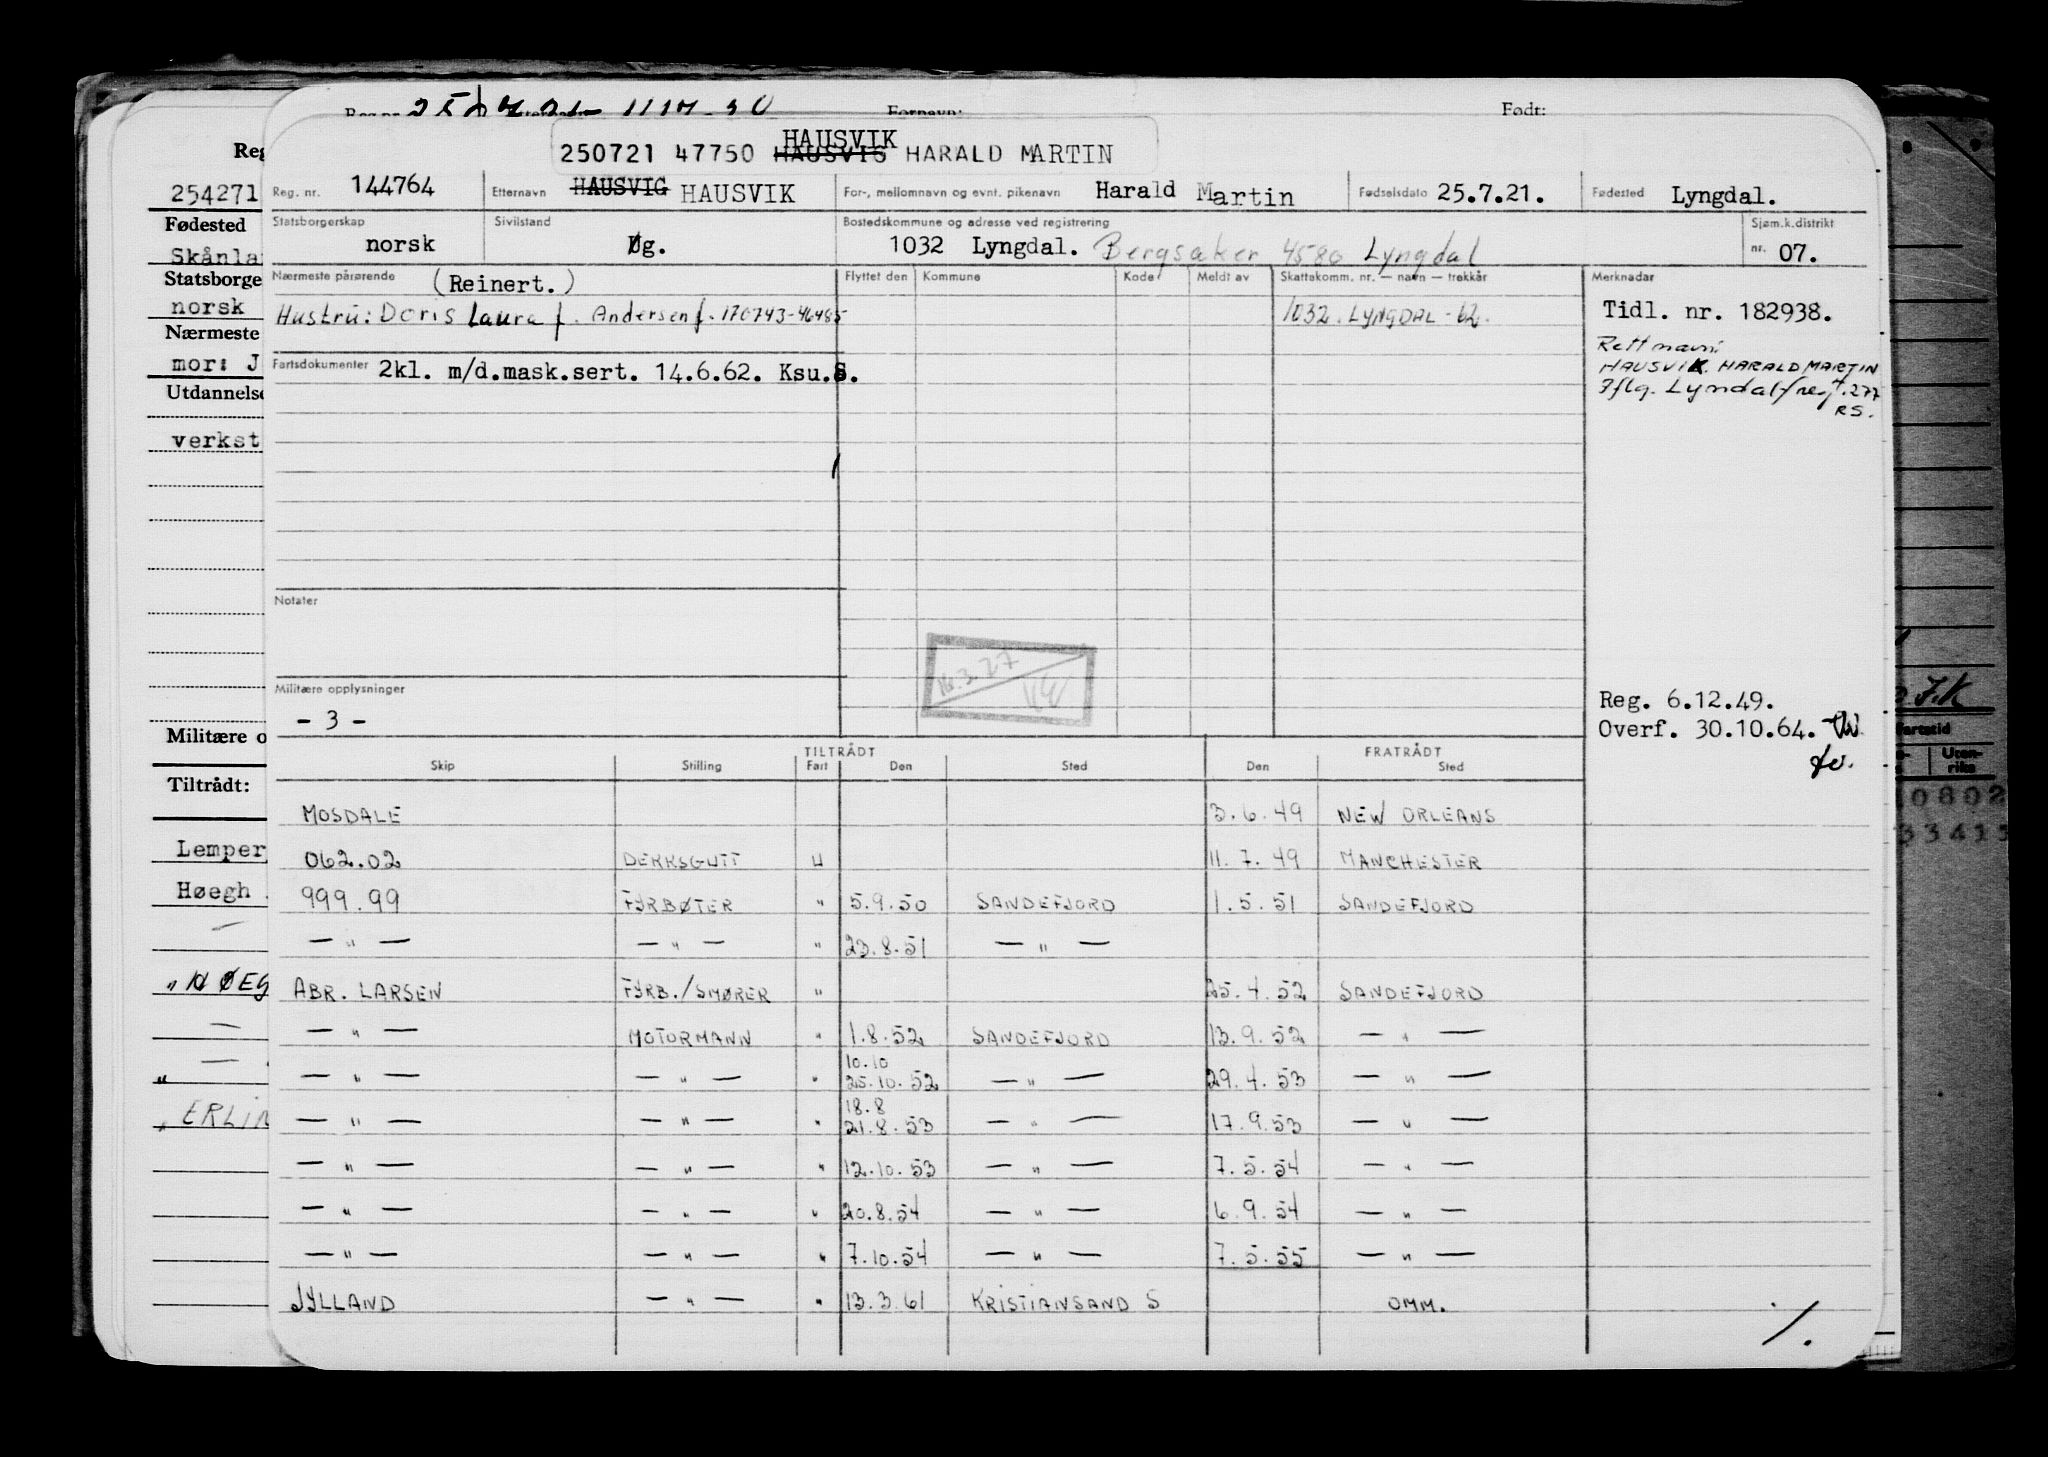 Reg.nr. Fornavn: Født:
HAUSVIK
250721 47750 HAUSVIG HARALD MARTIN
Reg. nr. 144764 Etternavn HAUSVIG HAUSVIK For-, mellomnavn og evnt. pikenavn Harald Martin Fødselsdato 25.7.21. Fødested Lyngdal.
Statsborgerskap norsk Sivilstand g. Bostedskommune og adresse ved registrering 1032 Lyngdal. Bergsaker 4580 Lyngdal Sjøm.k.distrikt nr. 07.
Nærmeste pårørende (Reinert.) Flyttet den Kommune Kode Meldt av Skattekomm. nr. — navn — trekkår Merknader
Hustru: Doris Laura f. Andersen f. 170743-46485 1032 LYNGDAL - 62. Tidl. nr. 182938.
Rett navn:
HAUSVIK HARALD MARTIN
Iflg. Lyndal f/reg. 277
RS.
Fartsdokumenter 2kl. m/d.mask.sert. 14.6.62. Ksu.S.
Notater
16.3.77
Militære opplysninger
- 3 -
Reg. 6.12.49.
Overf. 30.10.64.
TILTRÅDT FRATRÅDT
Skip Stilling Fart Den Sted Den Sted
MOSDALE 3.6.49 NEW ORLEANS
062.02 DEKKSGUTT U 11.7.49 MANCHESTER
999.99 FYRBØTER " 5.9.50 SANDEFJORD 1.5.51 SANDEFJORD
— " — — " — " 23.8.51 — " —
ABR. LARSEN FYRB./SMØRER " 25.4.52 SANDEFJORD
— " — MOTORMANN " 1.8.52 SANDEFJORD 13.9.52 — " —
10.10
— " — — " — " 25.10.52 — " — 29.4.53 — " —
18.8
— " — — " — " 21.8.53 — " — 17.9.53 — " —
— " — — " — " 12.10.53 — " — 7.5.54 — " —
— " — — " — " 20.8.54 — " — 6.9.54 — " —
— " — — " — " 7.10.54 — " — 7.5.55 — " —
JYLLAND — " — " 13.3.61 KRISTIANSAND S OMM.
%.
Reg
254271
Fødested
Skånla
Statsborge
norsk
Nærmeste
mor: J
Utdannelse
verkst
Militære o
Tiltrådt:
Lemper
Høegh
" HØEG
" ERLIN
J.K
Fartstid
Uten-
riks
10802
33415